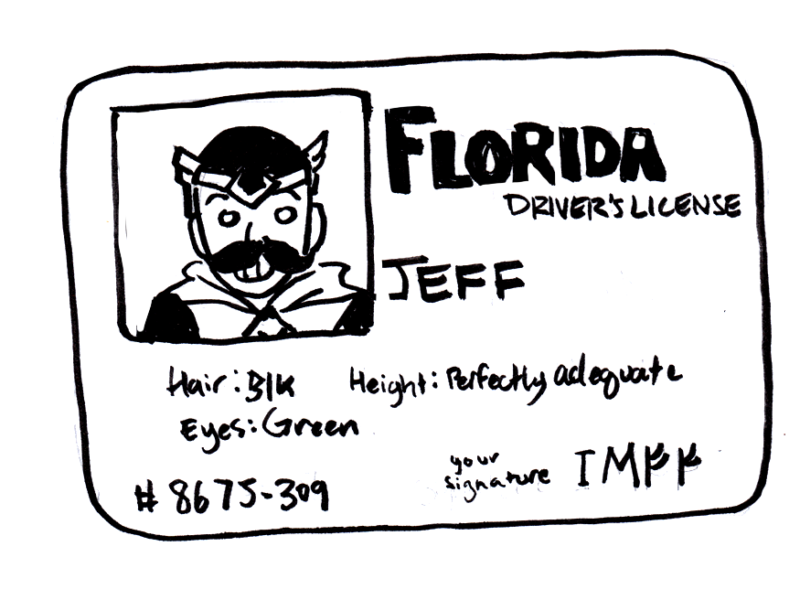 FLORIDA
DRIVER'S LICENSE
JEFF
Hair: Blk Height: Perfectly adequate
Eyes: Green
# 8675-309
your
signature